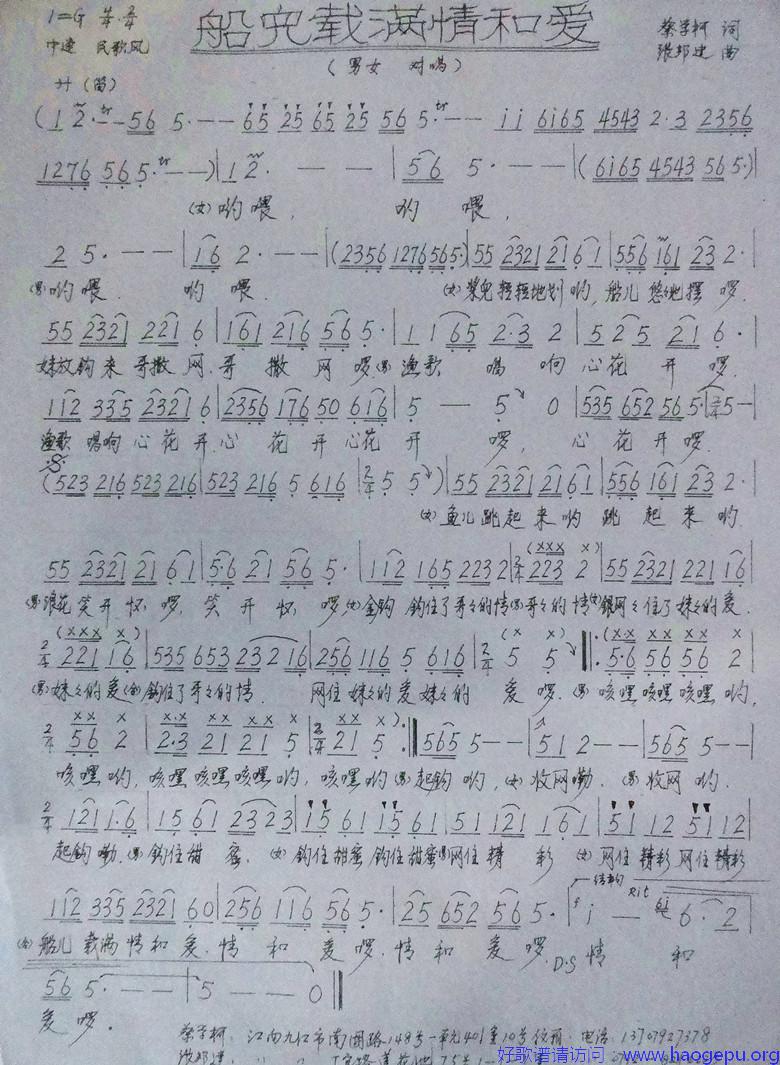 1=G 2/4 3/4
船儿载满情和爱
蔡学柯 词
中速 民歌风
张邦建 曲
(男女 对唱)
サ (笛)
(1 2·tr—— 56 5·—— 65 25 65 25 56 5·tr—— i i 6i65 4543 2·3 2356
1276 56 5·tr——)|1 2· — — |56 5·——|(6i65 4543 56 5·)|
(女)哟喂, 哟 喂,
2 5·——|16 2·——|(2356 1276 565·)|55 2321 216 1|556 161 23 2·|
(男)哟喂. 哟 喂. (女)桨儿轻轻地划 哟, 船儿 悠悠地 摆 啰.
55 2321 221 6|161 216 56 5·|1 1 65 2·3 2|5 2 5 21 6·|
妹放钩来 哥撒 网. 哥 撒 网 啰(男)渔歌 唱 响 心花 开 啰.
112 335 2321 6|2356 176 50 616|5 — 5 0|535 652 56 5·|2/4 5—|
渔歌 唱响 心花 开.心 花 开 心花 开 啰, 心 花 开 啰.
(523 216 523 216|523 216 5 616|2/4 5 5)|55 2321 216 1|556 161 23 2·|
(女)鱼儿跳起来哟 跳 起 来 哟.
55 2321 21 6 1|5·6 21 56 5·|112 165 223 2|2/4 (xxx x) 223 2|55 2321 221 16|
(男)浪花 笑开 怀 啰, 笑 开 怀 啰(女)金钩 钩住了哥哥的情(男)哥哥的情(女)银网网住了妹妹的爱.
2/4 (xxx x) 221 16|535 653 23 2 16|256 116 5 616|2/4 (x x) 5 5|:(x·x xx xx x) 5·6 56 56 2|
(男)妹妹的爱(女)钩住了哥哥的情 网住 妹妹的 爱 妹妹的 爱 啰.(男)咳嘿咳嘿咳嘿哟,
2/4 xx x 56 2|x·x xx xx x 2·3 21 21 5|2/4 xx x) 21 5:|565 5——|51 2——|565 5——|
咳嘿哟, 咳嘿咳嘿咳嘿哟, 咳嘿哟(男)起钩哟,(女)收网嘞. (男)收网 哟.
2/4 121 1·6|15 61 23 23|15 61 15 61|51 121 161|51 12 51 12|
起钩嘞.(男)钩住甜 蜜. (女)钩住甜蜜 钩住甜蜜(男)网住 精 彩 (女)网住 精彩 网住精彩
结束句 Rit
112 335 2321 60|256 116 56 5·|25 652 565 5·|f i — 6i 6·2
(合)船儿 载满 情和爱.情 和 爱 啰.情 和 爱 啰.D.S 情 和
56 5·——|5 — — 0||
爱 啰.
蔡学柯: 江西九江市南
好歌谱请访问 www.haogepu.org